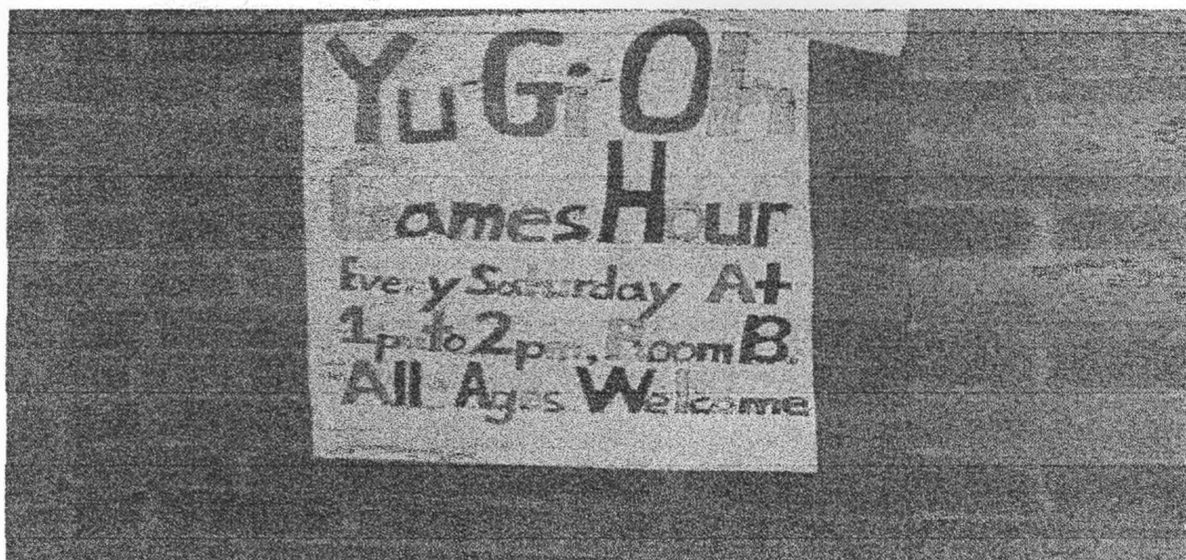 Yu-Gi-Oh
Games Hour
Every Saturday At
1pm to 2pm, Room B.
All Ages Welcome